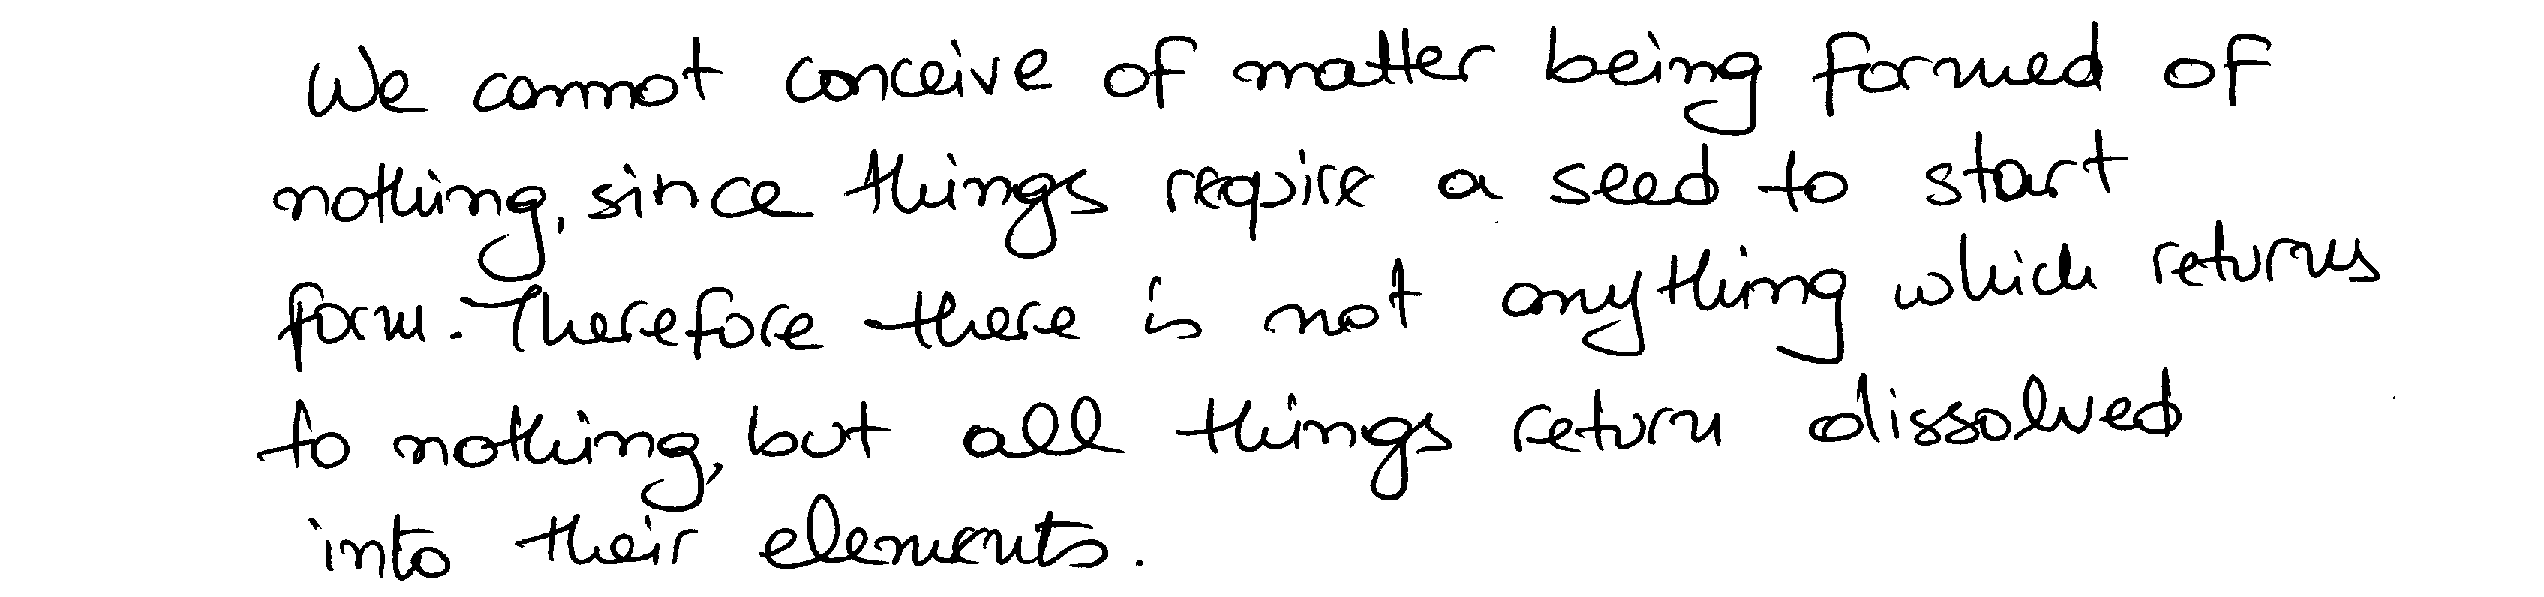 We cannot conceive of matter being formed of
nothing, since things require a seed to start
form. Therefore there is not anything which returns
to nothing, but all things return dissolved
into their elements.